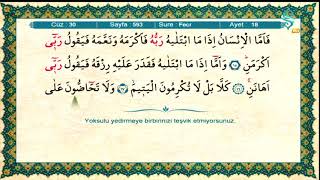 Cüz : 30 Sayfa : 593 Sure : Fecr Ayet : 18
فَاَمَّا الْاِنْسَانُ اِذَا مَا ابْتَلٰيهُ رَبُّهُ فَاَكْرَمَهُ وَنَعَّمَهُ فَيَقُولُ رَبّٖٓى
اَكْرَمَنِ ﴿١٥﴾ وَاَمَّٓا اِذَا مَا ابْتَلٰيهُ فَقَدَرَ عَلَيْهِ رِزْقَهُ فَيَقُولُ رَبّٖٓى
اَهَانَنِ ﴿١٦﴾ كَلَّا بَلْ لَا تُكْرِمُونَ الْيَتٖيمَ ﴿١٧﴾ وَلَا تَحَٓاضُّونَ عَلٰى
Yoksulu yedirmeye birbirinizi teşvik etmiyorsunuz.